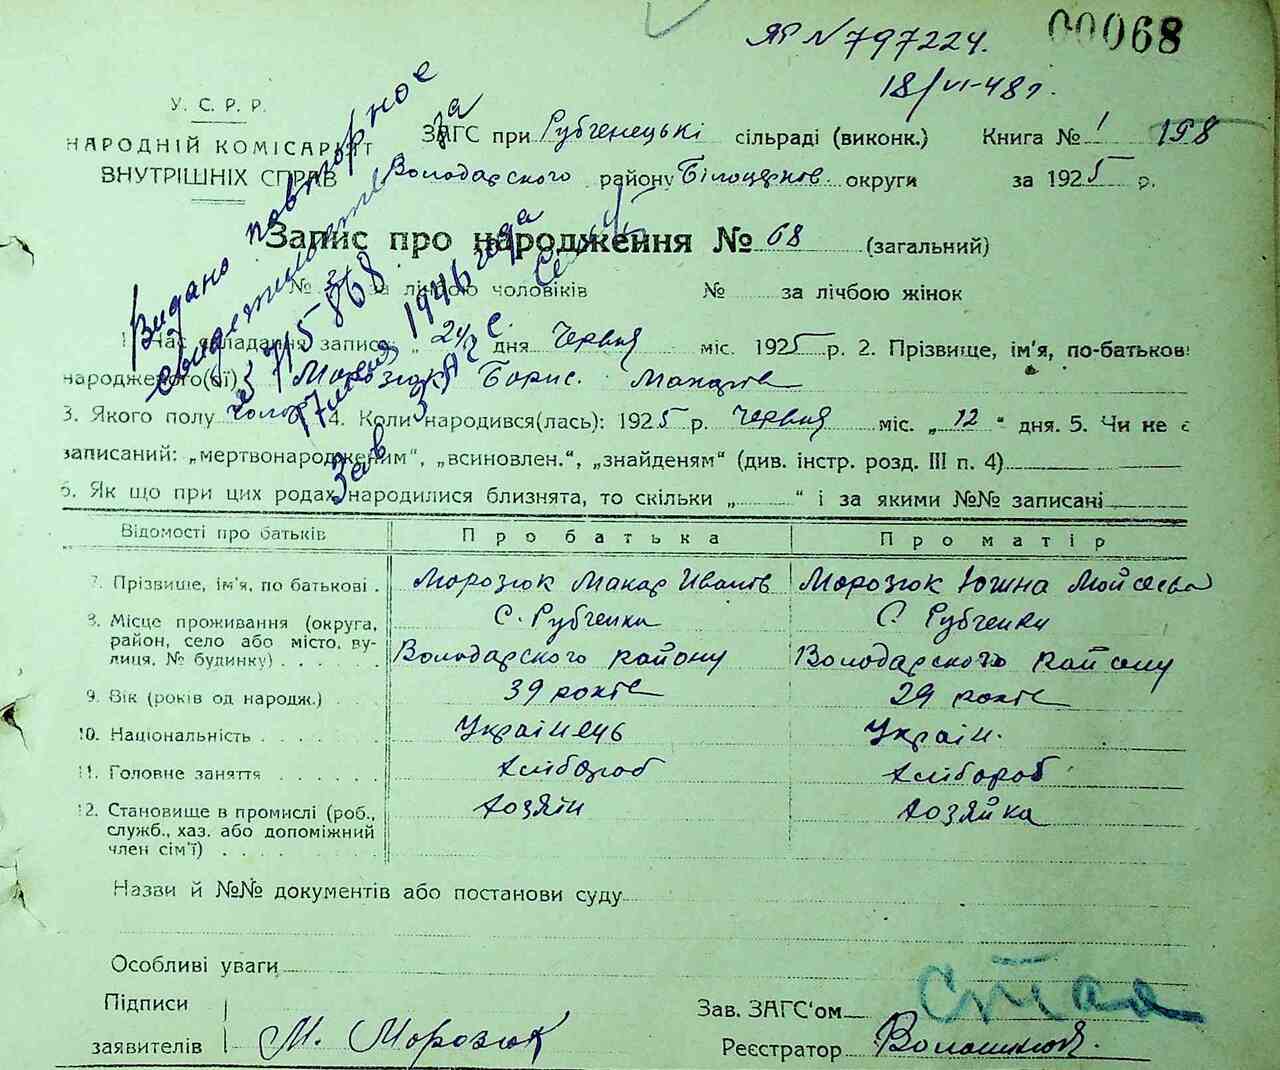 ЯР N 797224.
00068
18/VI-48 г.
У. С. Р. Р.
НАРОДНІЙ КОМІСАРІЯТ
ВНУТРІШНІХ СПРАВ
ЗАГС при Рубченецькі сільраді (виконк.) Книга № 1 198
Володарского району Білоцерков округи за 1925 р.
Видано повторное
свидетельство
Запис про народження № 68 (загальний)
№ за лічбою чоловіків № за лічбою жінок
1946 года
Зав ЗАГС
1. Час складання запису „24 дня Червня міс. 1925 р. 2. Прізвище, ім'я, по-батькові
народженого(ої) Морозюк Борис. Макарів
3. Якого полу чолов 4. Коли народився(лась): 1925 р. Червня міс. „12“ дня. 5. Чи не є
записаний: „мертвонародженим“, „всиновлен.“, „знайденям“ (див. інстр. розд. III п. 4)
6. Як що при цих родах народилися близнята, то скільки „ “ і за якими №№ записані
Відомості про батьків Про батька Про матір
7. Прізвище, ім'я, по батькові . Морозюк Макар Иванів Морозюк Юхина Мойсеева
8. Місце проживання (округа, С. Рубченки С. Рубченки
район, село або місто, ву-
лиця, № будинку) . . . . . Володарского району Володарского району
9. Вік (років од народж.) . . 39 років 29 років
10. Національність . . . . . . Українець Україн.
11. Головне заняття . . . . . . Хлібороб Хлібороб
12. Становище в промислі (роб., Хозяїн Хозяйка
служб., хаз. або допоміжний
член сім'ї) . . . . . . . .
Назви й №№ документів або постанови суду
Особливі уваги
Підписи Зав. ЗАГС'ом
заявителів М. Морозюк Реєстратор